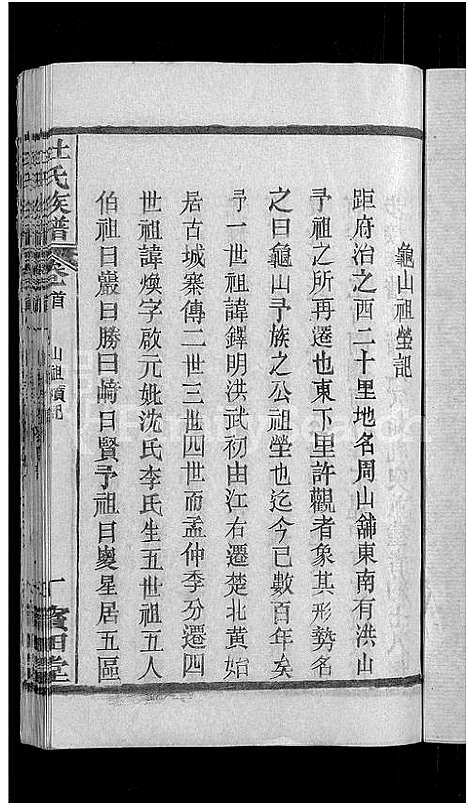 龜山祖塋記
距府治之西二十里地名周山舖東南有洪山
予祖之所再遷也東下里許觀者象其形勢名
之曰龜山予族之公祖塋也迄今已數百年矣
予一世祖諱鐸明洪武初由江右遷楚北黄始
居古城寨傳二世三世四世而孟仲季分遷四
世祖諱煥字啟元妣沈氏李氏生五世祖五人
伯祖曰叢曰勝曰﨑曰賢予祖曰夔星居五區
杜氏族譜 卷首 山祖墳記 一 寶田堂
FamilySearch